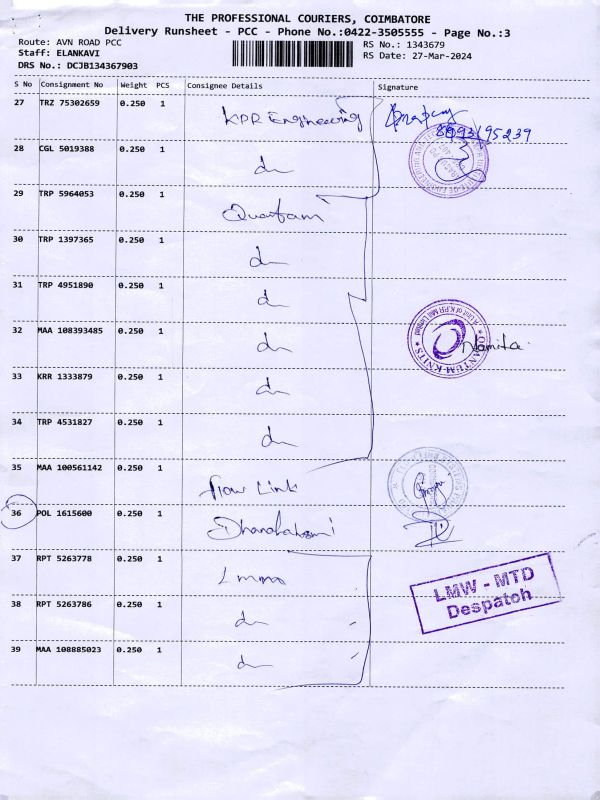 THE PROFESSIONAL COURIERS, COIMBATORE
Delivery Runsheet - PCC - Phone No.:0422-3505555 - Page No.:3
Route: AVN ROAD PCC
RS No.: 1343679
Staff: ELANKAVI
RS Date: 27-Mar-2024
DRS No.: DCJB134367903
S No Consignment No Weight PCS Consignee Details Signature
27 TRZ 75302659 0.250 1 KPR Engineering
8993195239
28 CGL 5019388 0.250 1 do
29 TRP 5964053 0.250 1 Quantam
30 TRP 1397365 0.250 1 do
31 TRP 4951890 0.250 1 do
32 MAA 108393485 0.250 1 do
QUANTUM KNITS
A Unit of KPR Mill Limited
Namita
33 KRR 1333879 0.250 1 do
34 TRP 4531827 0.250 1 do
35 MAA 100561142 0.250 1 Flow Link
36 POL 1615600 0.250 1 Dhanalaksmi
37 RPT 5263778 0.250 1
LMW - MTD
Despatch
38 RPT 5263786 0.250 1 do
39 MAA 108885023 0.250 1 do